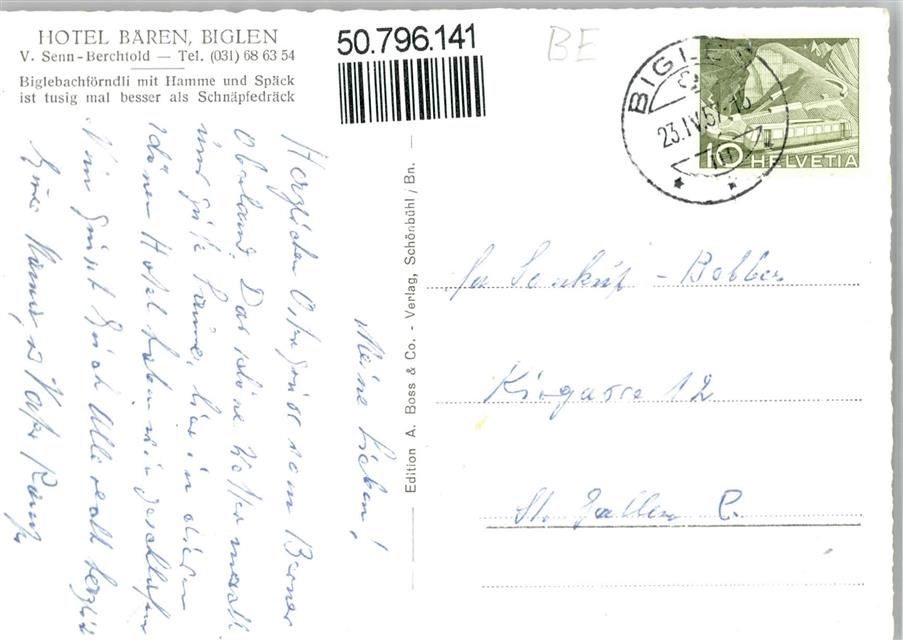 HOTEL BÄREN, BIGLEN
V. Senn-Berchtold — Tel. (031) 68 63 54
Biglebachförndli mit Hamme und Späck
ist tusig mal besser als Schnäpfedräck
50.796.141
BE
BIGLEN
23.IV.57
10 HELVETIA
Edition A. Boss & Co. - Verlag, Schönbühl / Bn.
Meine Lieben!
Herzlichen Ostergruss vom Berner
Oberland. Das schöne Wetter macht
uns gute Laune, hier in diesem
schönen Hotel haben wir geschlafen
Nun grüsst Euch Alle recht herzlich
Eure
Kirgasse 12
St. Gallen C.